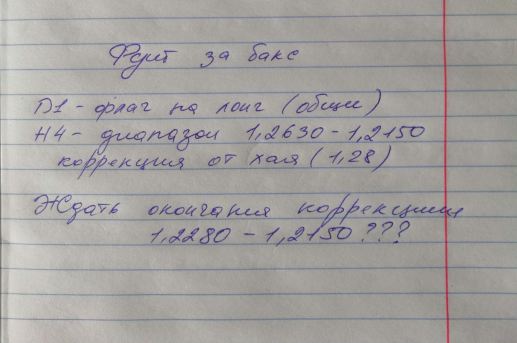 Фунт за бакс
D1 - флаг на лонг (общий)
H4 - диапазон 1,2630 - 1,2150
коррекция от хая (1,28)
Ждать окончания коррекции
1,2280 - 1,2150 ???